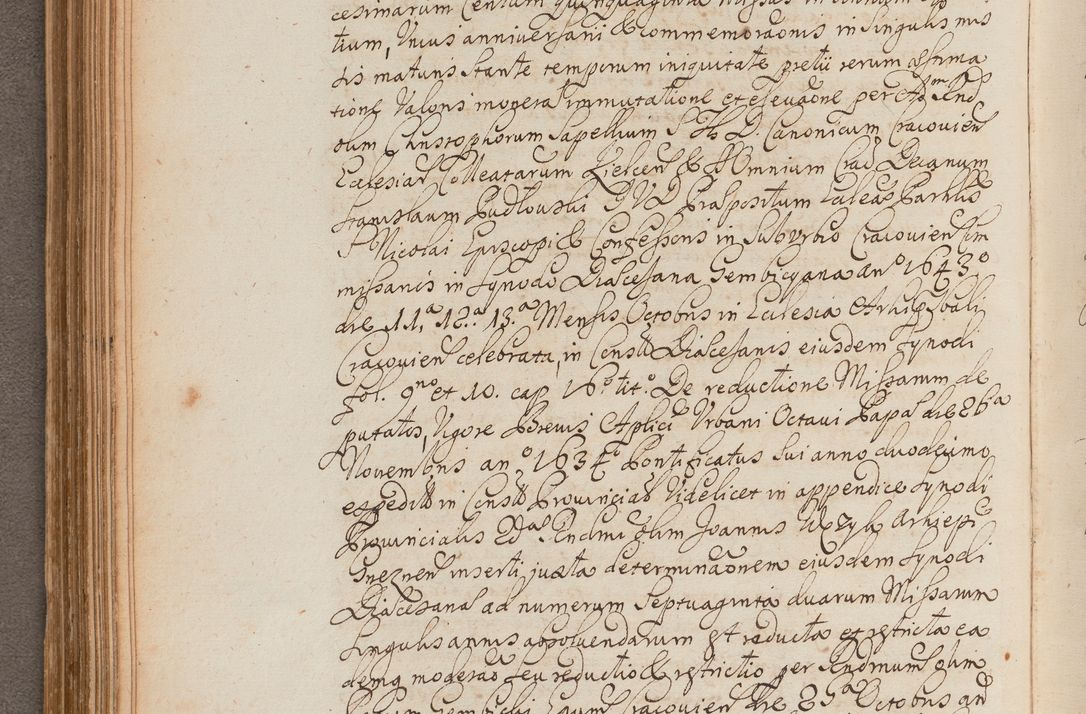 cesimarum Centum quinquaginta Missas in
tium, Unius anniversarij & Commemoraonis in singulis men
sis maturis stante temporum iniquitate pretii rerum æstima
tione Valoris monetæ immutatione et elevaõne per Adm Rnd
olim Christophorum Sapellium S Th D. Canonicum Cracovien
Ecclesiar Collegiatarum Kielcen & OOmnium Crac Decanum
Stanislaum Pudlouski J V D Præpositum Ecclesiæ Parhlis
S Nicolai Episcopi & Confessoris in Suburbio Cracovien Com
missarios in Synodo Diæcesana Gembicyana an° 1643°
die 11ª 12ª 13ª Mensis Octobris in Ecclesia Cathedrali
Cracovien celebrata, in Constt Diæcesanis eiusdem Synodi
fol. 9no et 10. cap 16° tit° De reductione Missarum de
putatos, Vigore Brevis Aplici Urbani Octavi Papæ die 26ª
Novembris an° 1634° Pontificatus sui anno duodecimo
expediti in Constt Provincial Videlicet in appendice Synodi
Provincialis Edal Rndmi olim Joannis Wezyk Archiepi
Gneznen inserti juxta determinaõnem eiusdem Synodi
Diæcesanæ ad numerum Septuaginta duarum Missarum
Singulis annis absolvendarum est reducta et restricta ea
demq moderaõ seu reductio & restrictio per Rndmum olim
Petrum Gembicki Epum Cracovien die 25ª Octobris an